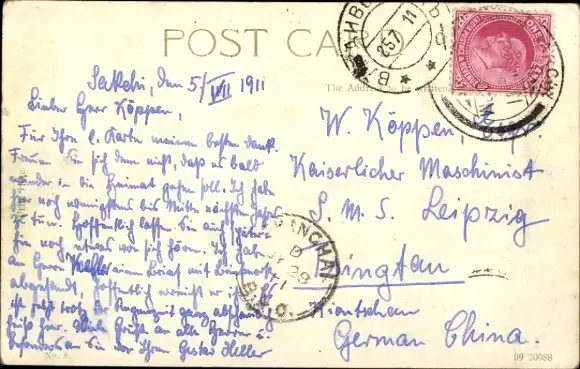 POST CARD
The Address to be written
Sakchi, den 5/VII 1911
Lieber Herr Köppen,
Für Ihre l. Karte meinen besten Dank.
Freuen Sie sich denn nicht, daß es bald
wieder in die Heimat gehen soll. Ich habe
hier noch wenigstens bis Mitte nächsten Jahres
zu tun. Hoffentlich lassen Sie auch später
hin noch etwas von sich hören. Ich habe
an Herrn einen Brief mit
abgesandt, hoffentlich erreicht er ihn. Es
ist jetzt trotz der Regenzeit ganz
hier. Viele Grüße an alle Herren u.
besonders an Sie von Ihrem Gustav Heller
W. Köppen,
Kaiserlicher Maschinist
S.M.S. Leipzig
Tsingtau
Kiautschou
German China.
257
11
SHANGHAI
29
No. 8.
09 20988